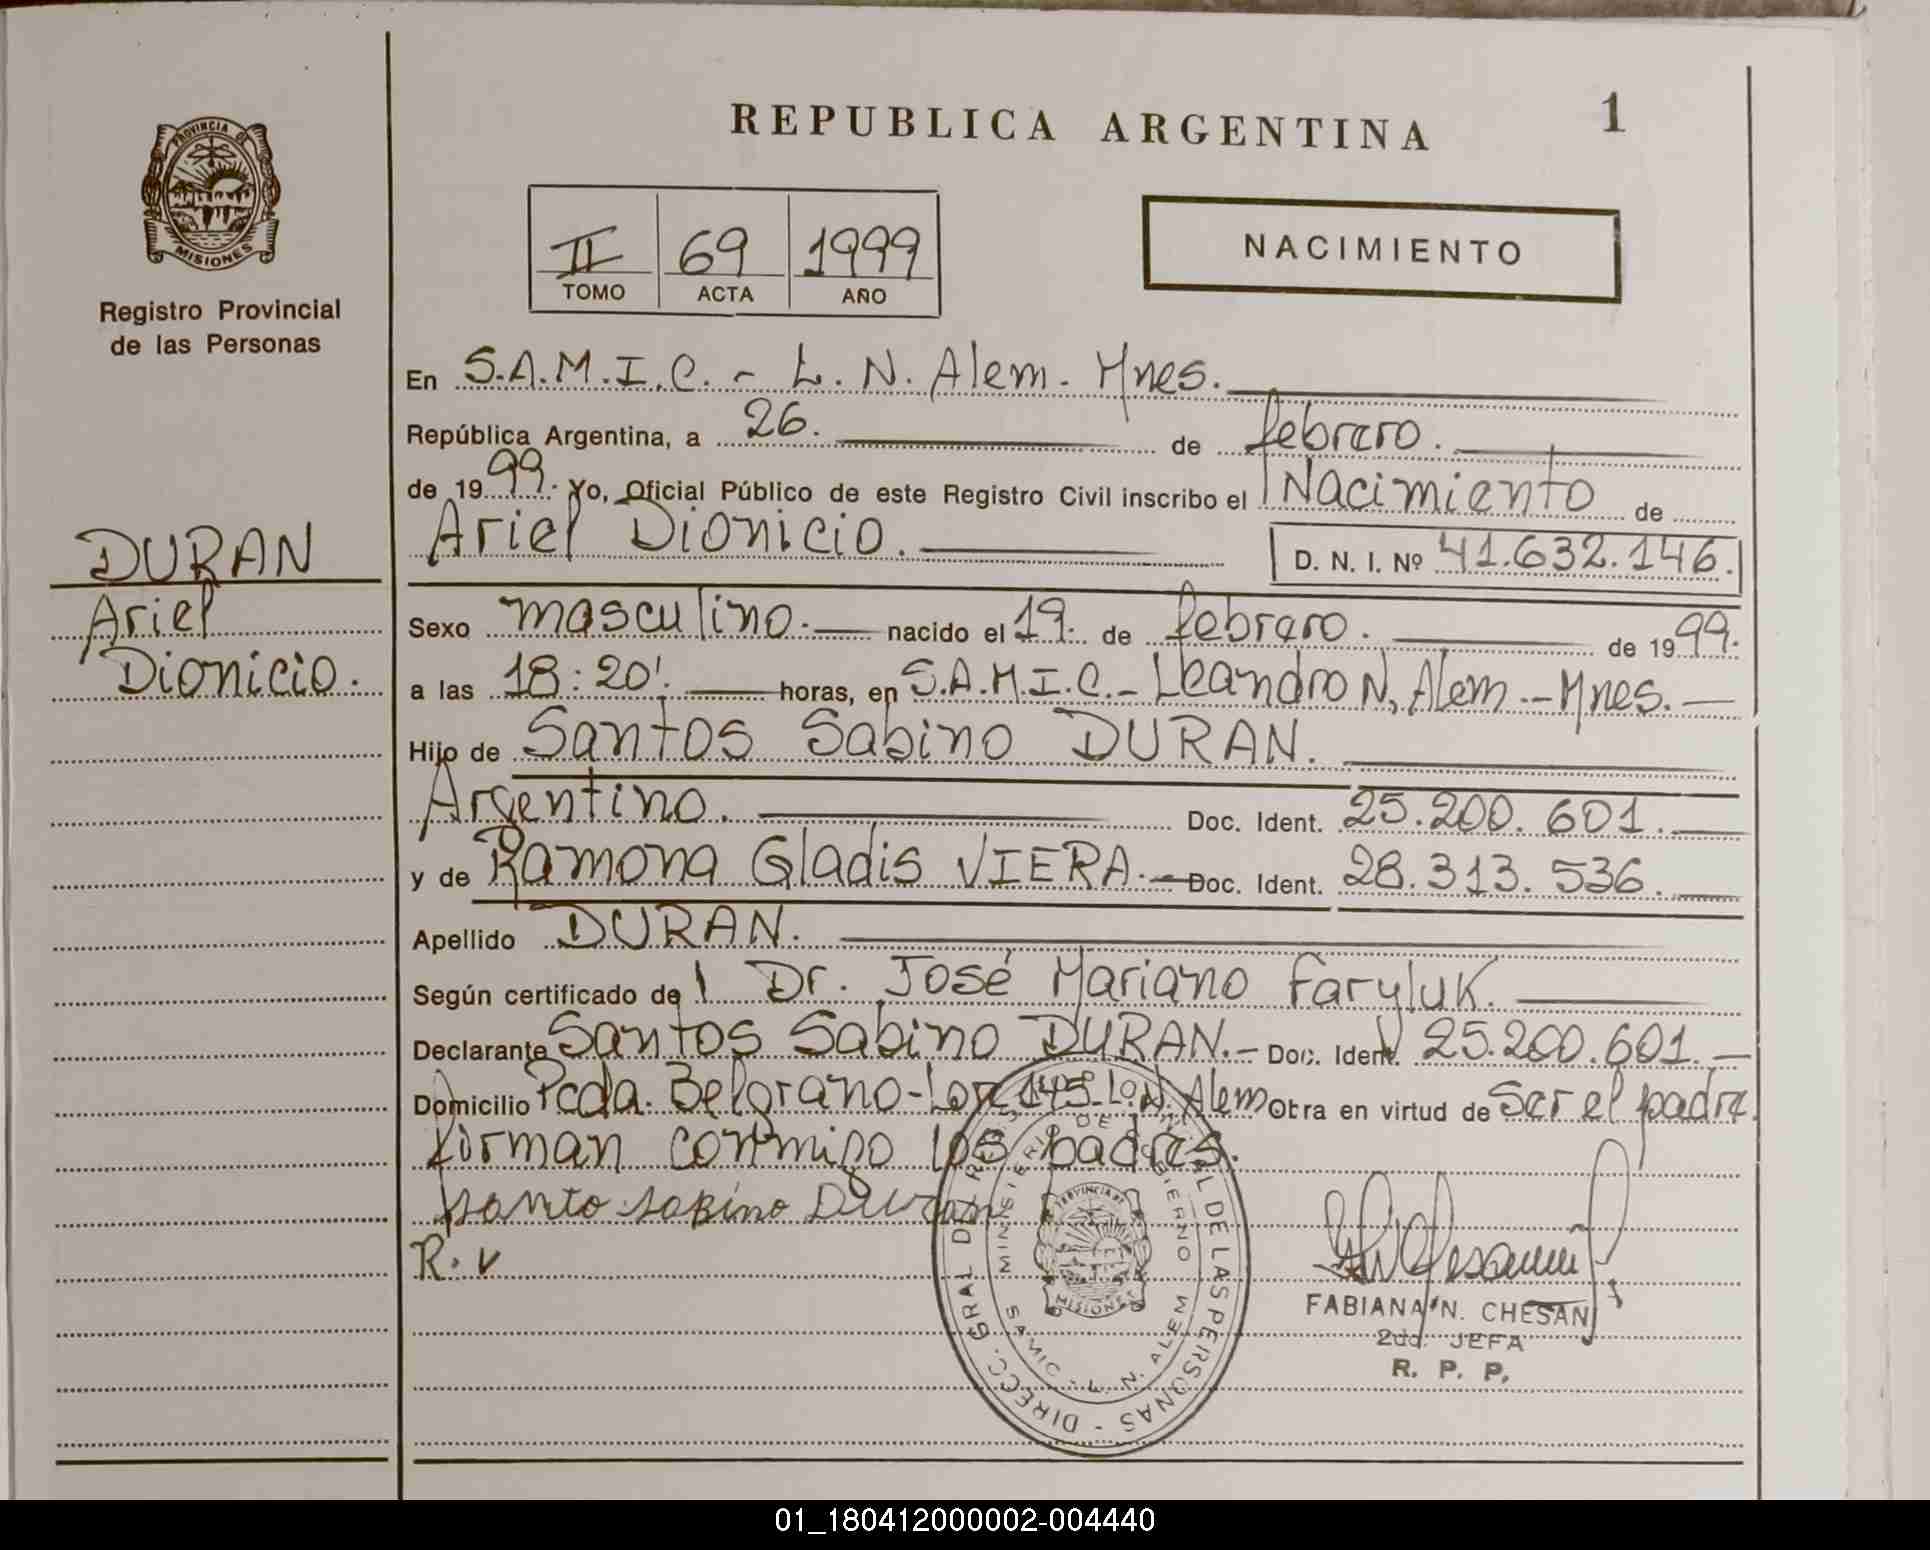 REPUBLICA ARGENTINA
1
PROVINCIA DE
MISIONES
Registro Provincial
de las Personas
II 69 1999
TOMO ACTA AÑO
NACIMIENTO
En S.A.M.I.C. - L. N. Alem - Mnes.
República Argentina, a 26. de febrero.
de 1999. Yo, Oficial Público de este Registro Civil inscribo el Nacimiento de
Ariel Dionicio. D. N. I. Nº 41.632.146.
DURAN
Ariel
Dionicio.
Sexo masculino. nacido el 19. de febrero. de 1999.
a las 18:20'. horas, en S.A.M.I.C. - Leandro N. Alem - Mnes.
Hijo de Santos Sabino DURAN.
Argentino. Doc. Ident. 25.200.601.
y de Ramona Gladis VIERA. Doc. Ident. 28.313.536.
Apellido DURAN.
Según certificado de Dr. José Mariano Faryluk.
Declarante Santos Sabino DURAN. - Doc. Ident. 25.200.601.
Domicilio Pcda. Belgrano - 145 - L. N. Alem Obra en virtud de ser el padre
firman conmigo los padres.
santo sabino Duran
R. v
DIRECC. GRAL DE LAS PERSONAS
GOBIERNO
SAMIC - L. N. ALEM
PROVINCIA DE
MISIONES
FABIANA N. CHESANI
2da. JEFA
R. P. P.
01_180412000002-004440